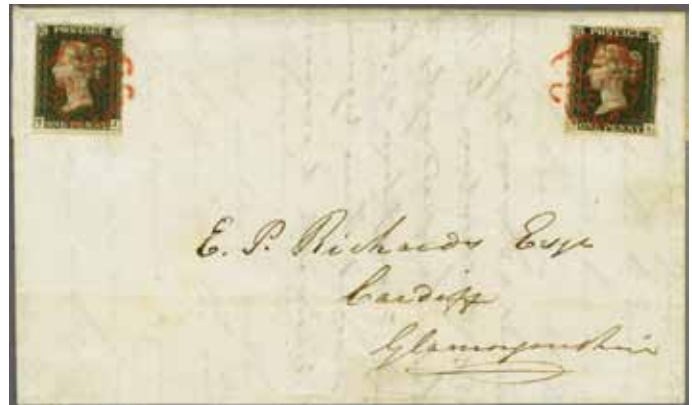 POSTAGE
ONE PENNY
POSTAGE
ONE PENNY
E. P. Richards Esqr
Cardiff
Glamorganshire